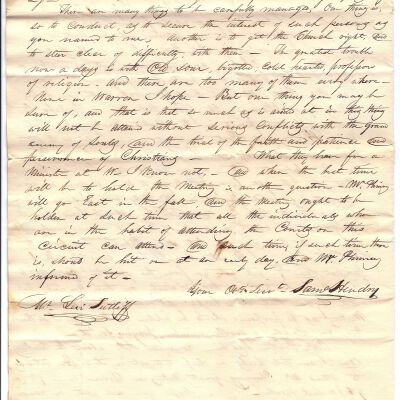 There are many things to be carefully managed, One thing is,
so to conduct as to secure the interest of such persons as
you named to me, Another is to get the Church right, and
to steer clear of difficulty with them – The greatest trouble
now a days is with Old Sour, bigoted, Cold hearted professors
of religion. And there are too many of them every where –
None in Warren I hope – But one thing you may be
sure of, and that is that so much as is aimed at in this thing
will not be attained without serious Conflicts with the grand
enemy of Souls, and the trial of the faith and patience and
perseverance of Christians – What they have for a
Minister at W. I know not, – And when the best time
will be to hold the Meeting is another question – Mr. Finney
will go East in the fall, And the Meeting ought to be
holden at such time that all the individuals who
are in the habit of attending the Courts on this
Circuit can attend – And such time, if such time there
is, should be hit on at an early day, And Mr. Finney
informed of it –
Your Obt Servt – Saml Hendry
Mr. Levi Sutliff